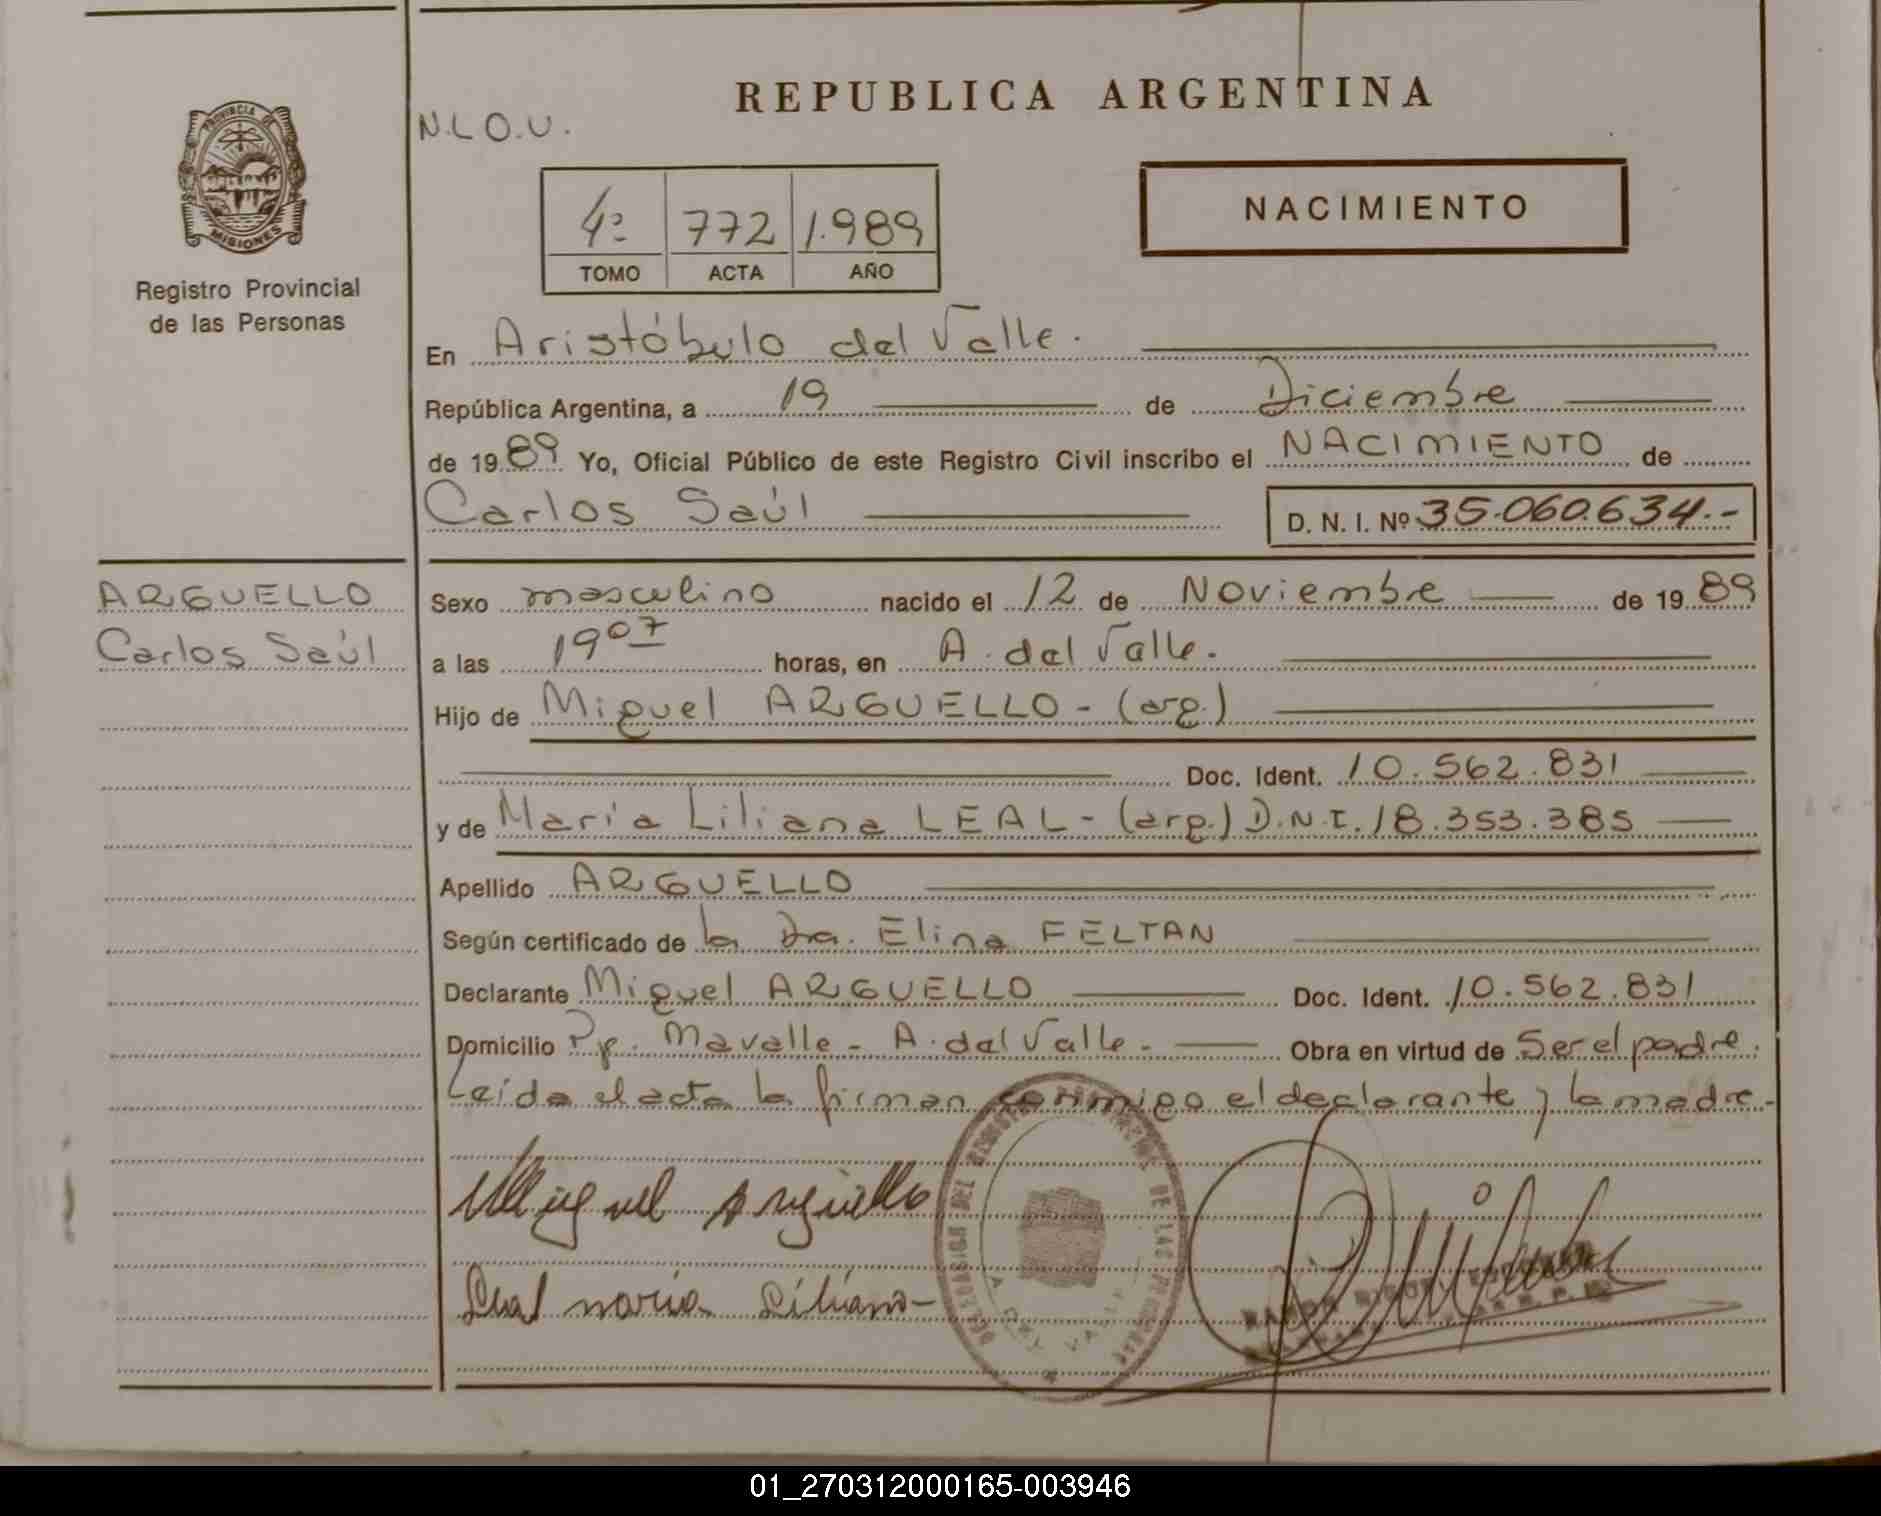 REPUBLICA ARGENTINA
N.L.O.U.
PROVINCIA DE
MISIONES
Registro Provincial
de las Personas
4º 772 1.989
TOMO ACTA AÑO
NACIMIENTO
En Aristóbulo del Valle.
República Argentina, a 19 de Diciembre
de 1989 Yo, Oficial Público de este Registro Civil inscribo el NACIMIENTO de
Carlos Saúl D. N. I. Nº 35.060.634.-
ARGUELLO
Carlos Saúl
Sexo masculino nacido el 12 de Noviembre de 1989
a las 19 07 horas, en A. del Valle.
Hijo de Miguel ARGUELLO - (arg.)
Doc. Ident. 10.562.831
y de María Liliana LEAL - (arg.) D.N.I. 18.353.385
Apellido ARGUELLO
Según certificado de la Dra. Elina FELTAN
Declarante Miguel ARGUELLO Doc. Ident. 10.562.831
Domicilio Pp. Mavalle - A. del Valle - Obra en virtud de Ser el padre.
Leída el acta la firman conmigo el declarante y la madre.-
Miguel Arguello
Leal maria Liliana
DELEGACION DEL REGISTRO PROVINCIAL DE LAS PERSONAS
RAMON
01_270312000165-003946